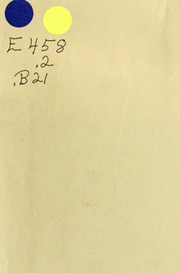 E 458
.2
.B21